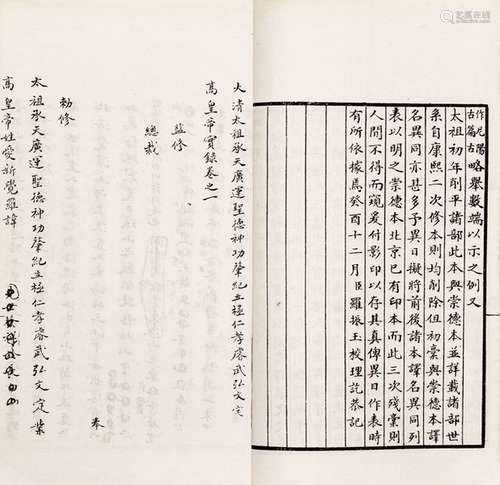 作尼瑪
古篇古略舉數端以示之例又
太祖初年削平諸部此本與崇德本並詳載諸部世
系自康熙二次修本則均削除但初稾與崇德本譯
名異同亦甚多予異日擬將前後諸本譯名異同列
表以明之崇德本北京已有印本而此三次殘稾則
人間不得而窺爰付影印以存其真俾異日作表時
有所依據焉癸酉十二月臣羅振玉校理訖恭記
大清太祖承天廣運聖德神功肇紀立極仁孝睿武弘文定業
高皇帝實錄卷之一
監修
總裁
奉
勅修
太祖承天廣運聖德神功肇紀立極仁孝睿武弘文定業
高皇帝姓愛新覺羅諱